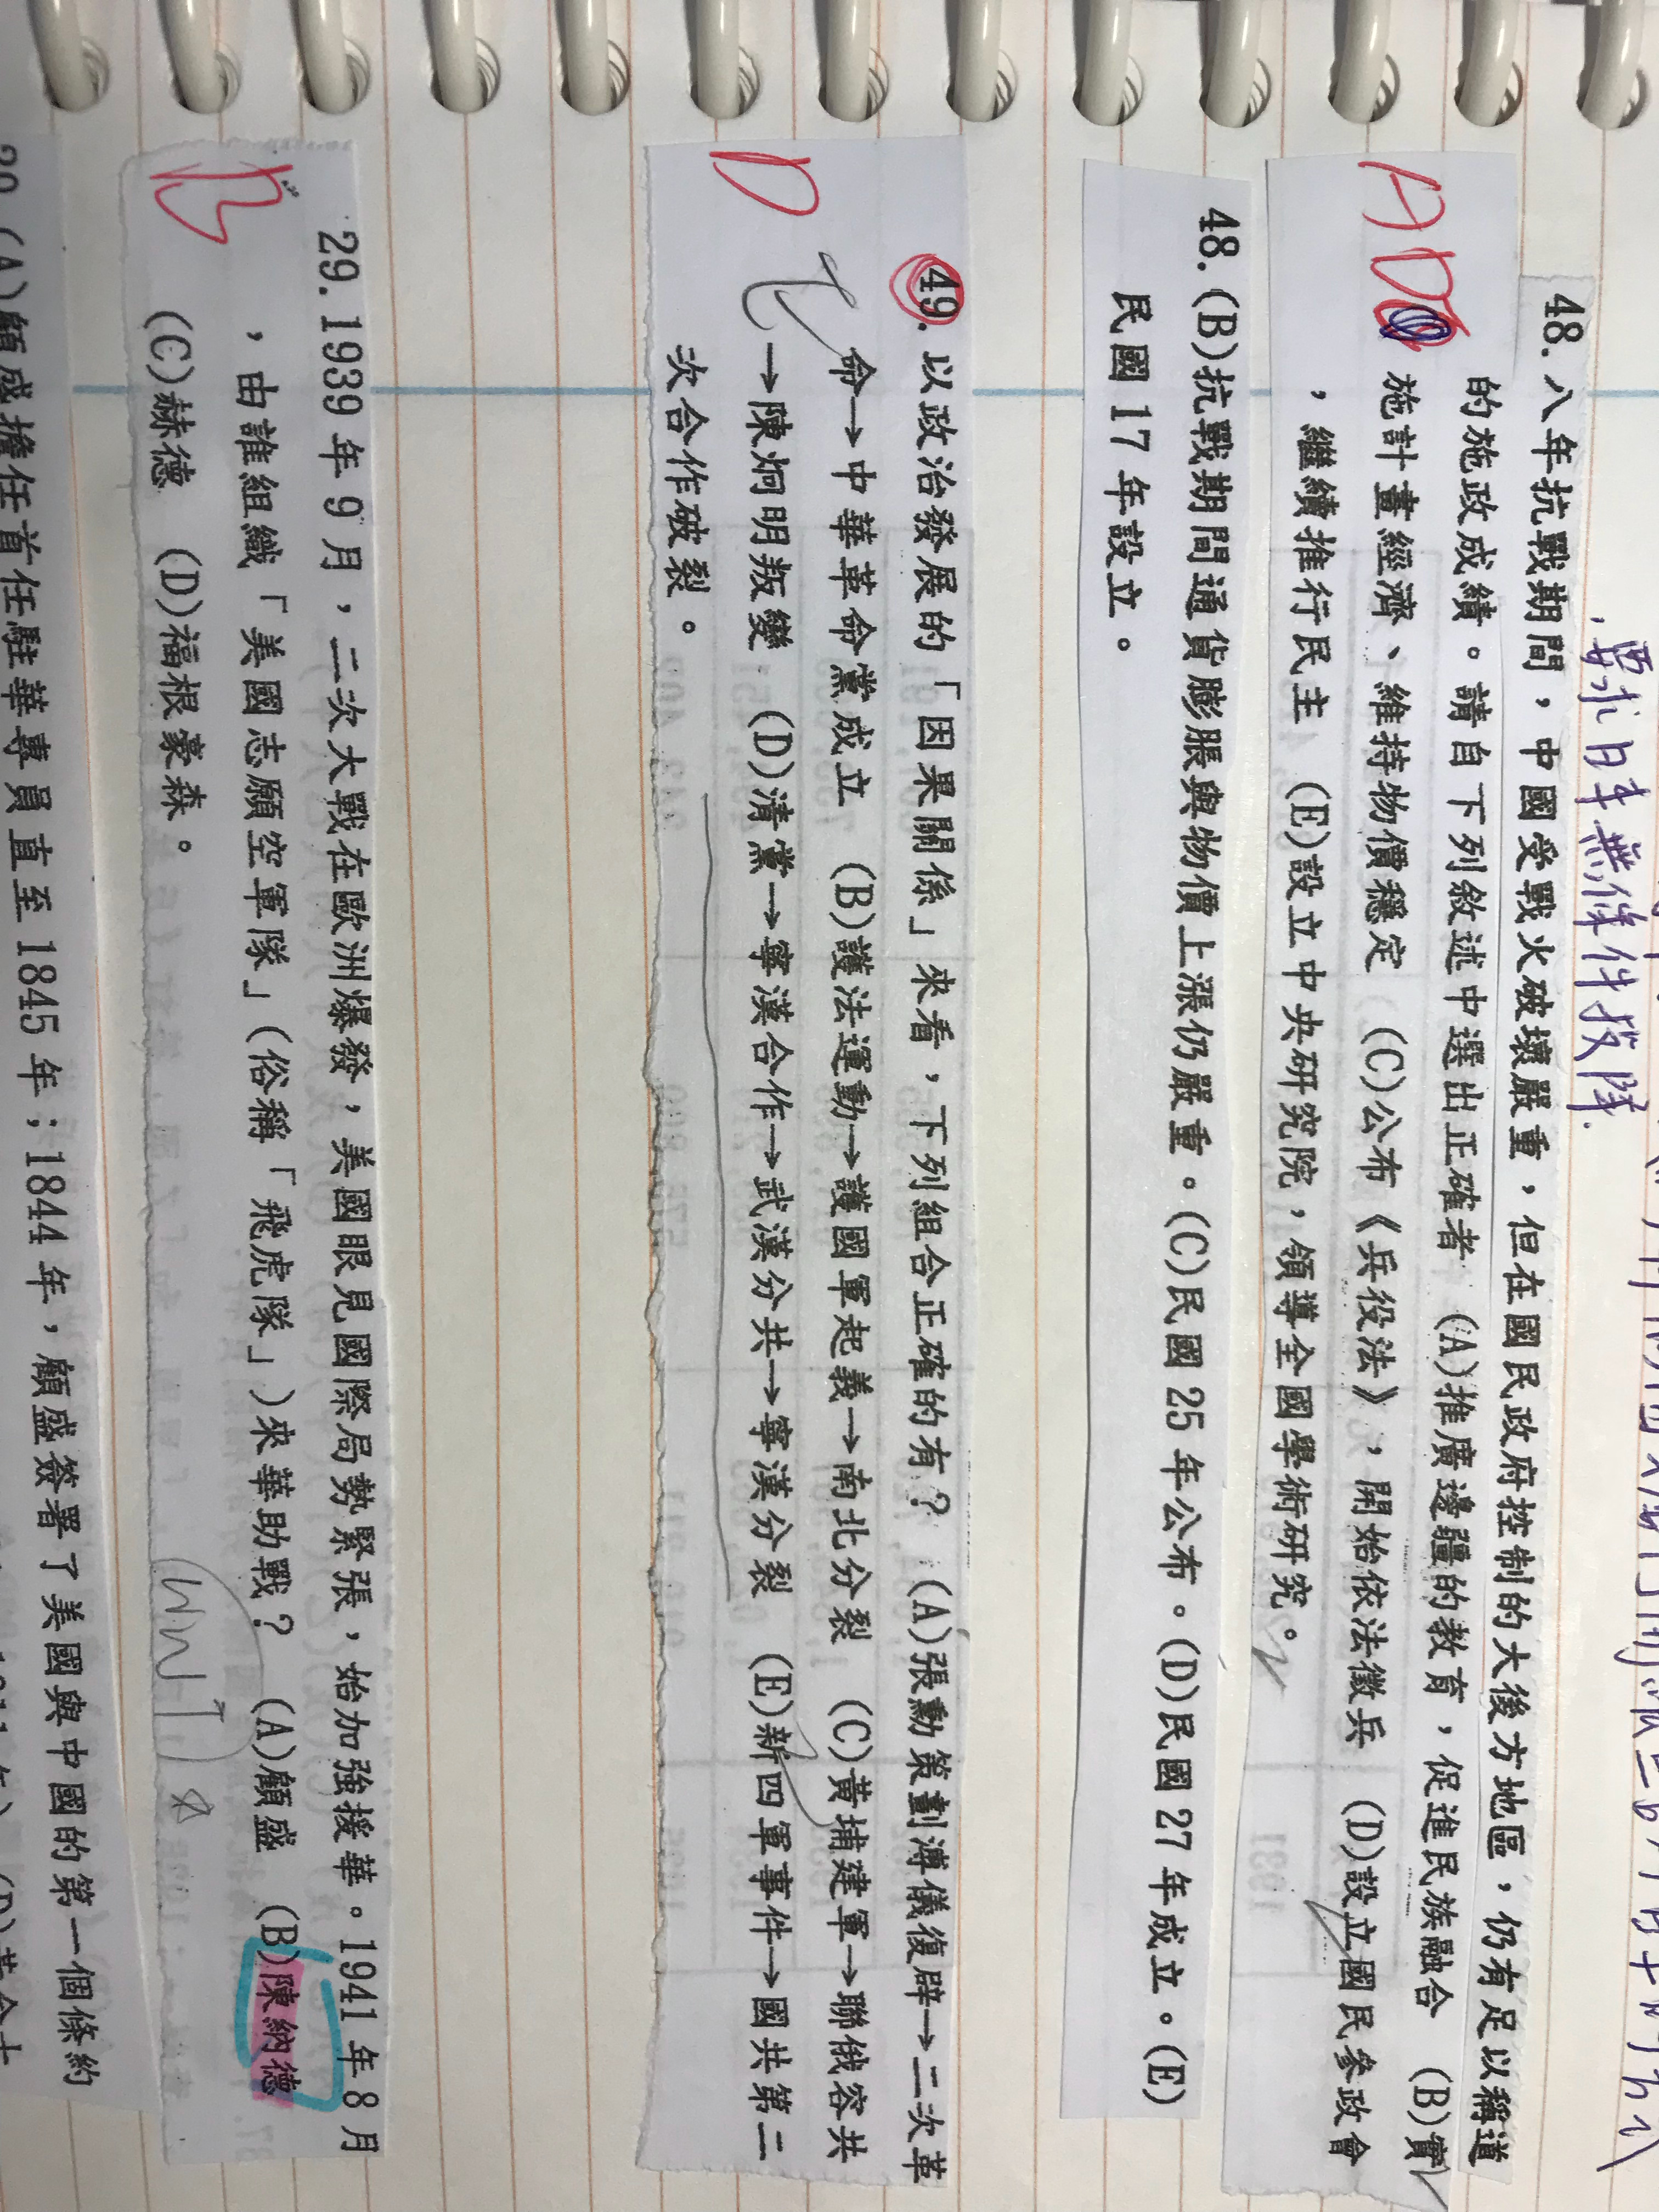 要求日本無條件投降.
48.八年抗戰期間，中國受戰火破壞嚴重，但在國民政府控制的大後方地區，仍有足以稱道
的施政成績。請自下列敘述中選出正確者 (A)推廣邊疆的教育，促進民族融合 (B)實
AD
施計畫經濟、維持物價穩定 (C)公布《兵役法》，開始依法徵兵 (D)設立國民參政會
，繼續推行民主 (E)設立中央研究院，領導全國學術研究。
48.(B)抗戰期間通貨膨脹與物價上漲仍嚴重。(C)民國25年公布。(D)民國27年成立。(E)
民國17年設立。
49.以政治發展的「因果關係」來看，下列組合正確的有？ (A)張勳策劃溥儀復辟→二次革
命→中華革命黨成立 (B)護法運動→護國軍起義→南北分裂 (C)黃埔建軍→聯俄容共
D
→陳炯明叛變 (D)清黨→寧漢合作→武漢分共→寧漢分裂 (E)新四軍事件→國共第二
次合作破裂。
29.1939年9月，二次大戰在歐洲爆發，美國眼見國際局勢緊張，始加強援華。1941年8月
，由誰組織「美國志願空軍隊」(俗稱「飛虎隊」)來華助戰？ (A)顧盛 (B)陳納德
B
(C)赫德 (D)福根豪森。
顧盛簽署了美國與中國的第一個條約
顧盛擔任首任駐華專員直至1845年；1844年，